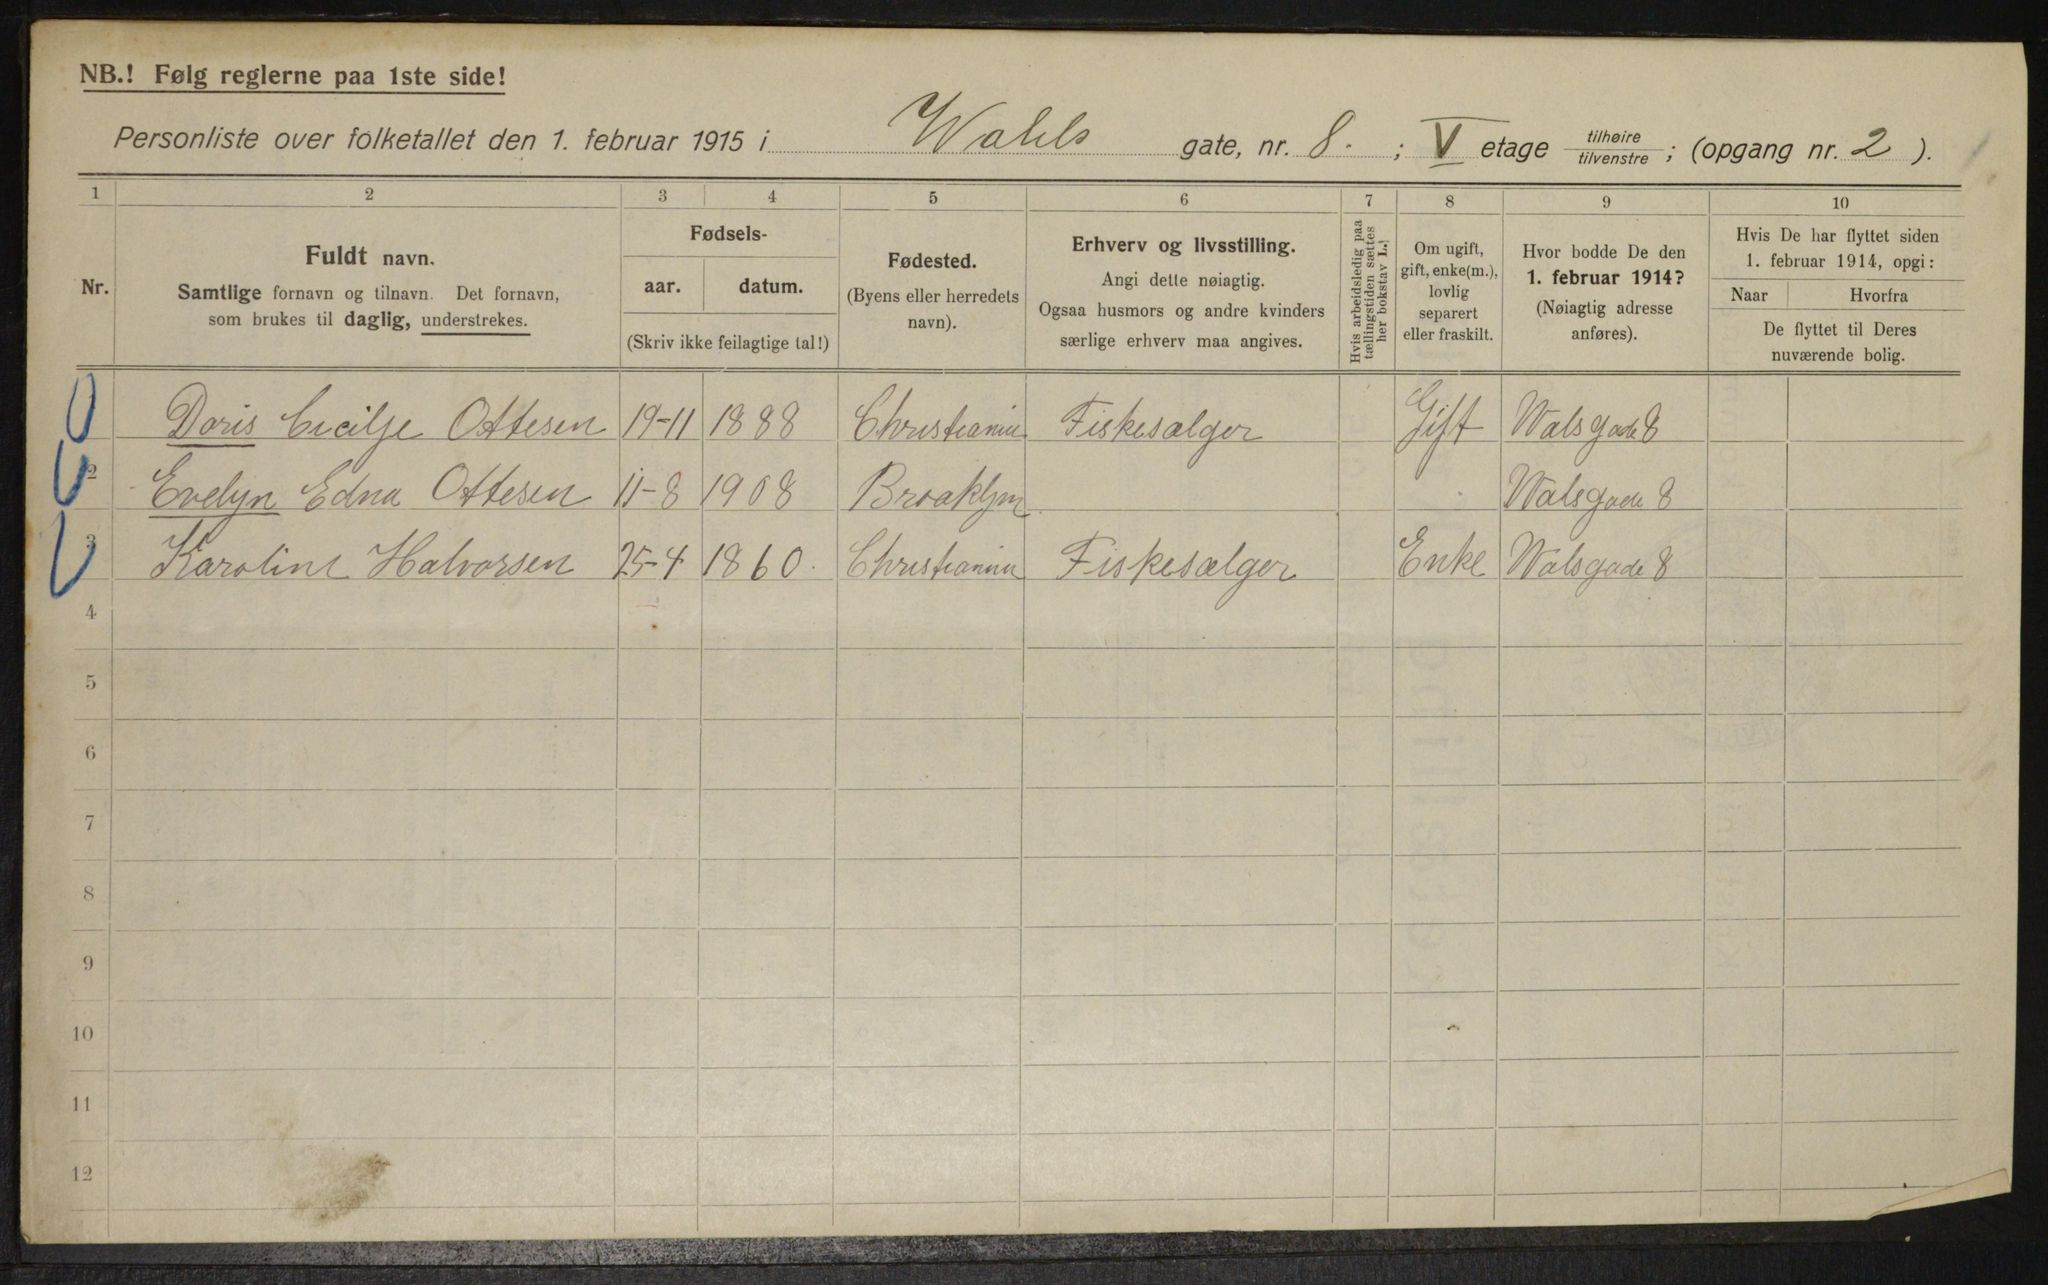 NB.! Følg reglerne paa 1ste side!
Personliste over folketallet den 1. februar 1915 i Wahls gate, nr. 8. ; V etage tilhøire / tilvenstre ; (opgang nr. 2 ).
1 2 3 4 5 6 7 8 9 10
Nr.
Fuldt navn.
Samtlige fornavn og tilnavn. Det fornavn,
som brukes til daglig, understrekes.
Fødsels-
aar. datum.
(Skriv ikke feilagtige tal!)
Fødested.
(Byens eller herredets
navn).
Erhverv og livsstilling.
Angi dette nøiagtig.
Ogsaa husmors og andre kvinders
særlige erhverv maa angives.
Hvis arbeidsledig paa
tællingstiden sættes
her bokstav L.)
Om ugift,
gift, enke(m.),
lovlig
separert
eller fraskilt.
Hvor bodde De den
1. februar 1914?
(Nøiagtig adresse
anføres).
Hvis De har flyttet siden
1. februar 1914, opgi:
Naar Hvorfra
De flyttet til Deres
nuværende bolig.
Doris Cecilje Ottesen 19-11 1888 Christiania Fiskesælger Gift Walsgade 8
2 Evelyn Edna Ottesen 11-8 1908 Broaklyn Walsgade 8
3 Karoline Halvorsen 25-4 1860. Christiania Fiskesælger Enke Walsgade 8
4
5
6
7
8
9
10
11
12